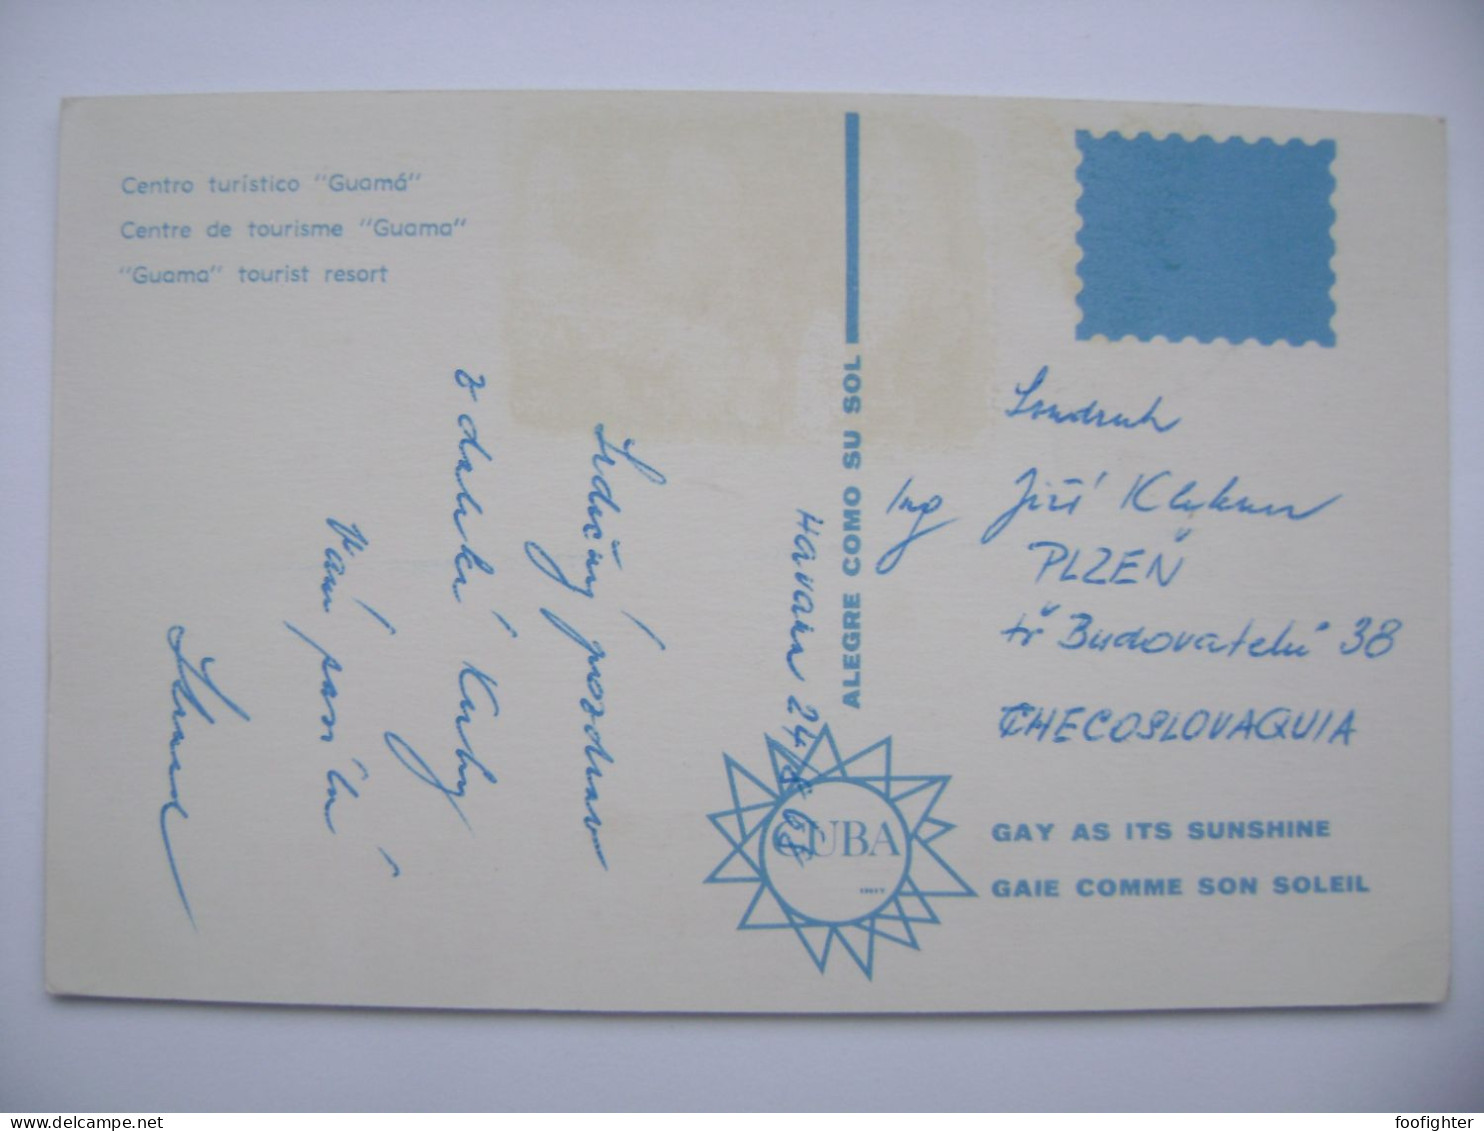 Centro turístico "Guamá"
Centre de tourisme "Guama"
"Guama" tourist resort
Srdečný pozdrav
z daleké Kuby
Vám posílá
Havana 24/8 68
ALEGRE COMO SU SOL
Soudruh
Ing Jiří
PLZEŇ
tř Budovatelů 38
CHECOSLOVAQUIA
CUBA
INIT
GAY AS ITS SUNSHINE
GAIE COMME SON SOLEIL
foofighter
www.delcampe.net